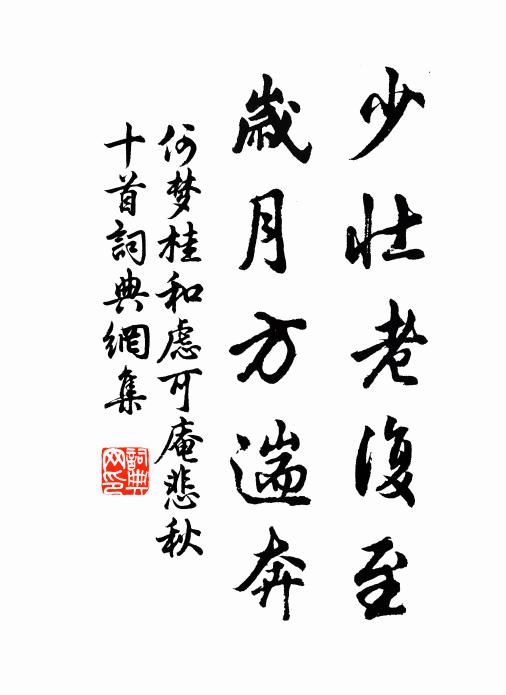 少壮老復至
歲月方遄奔
何梦桂和慮可庵悲秋
十首詞典網集
詞典
网印